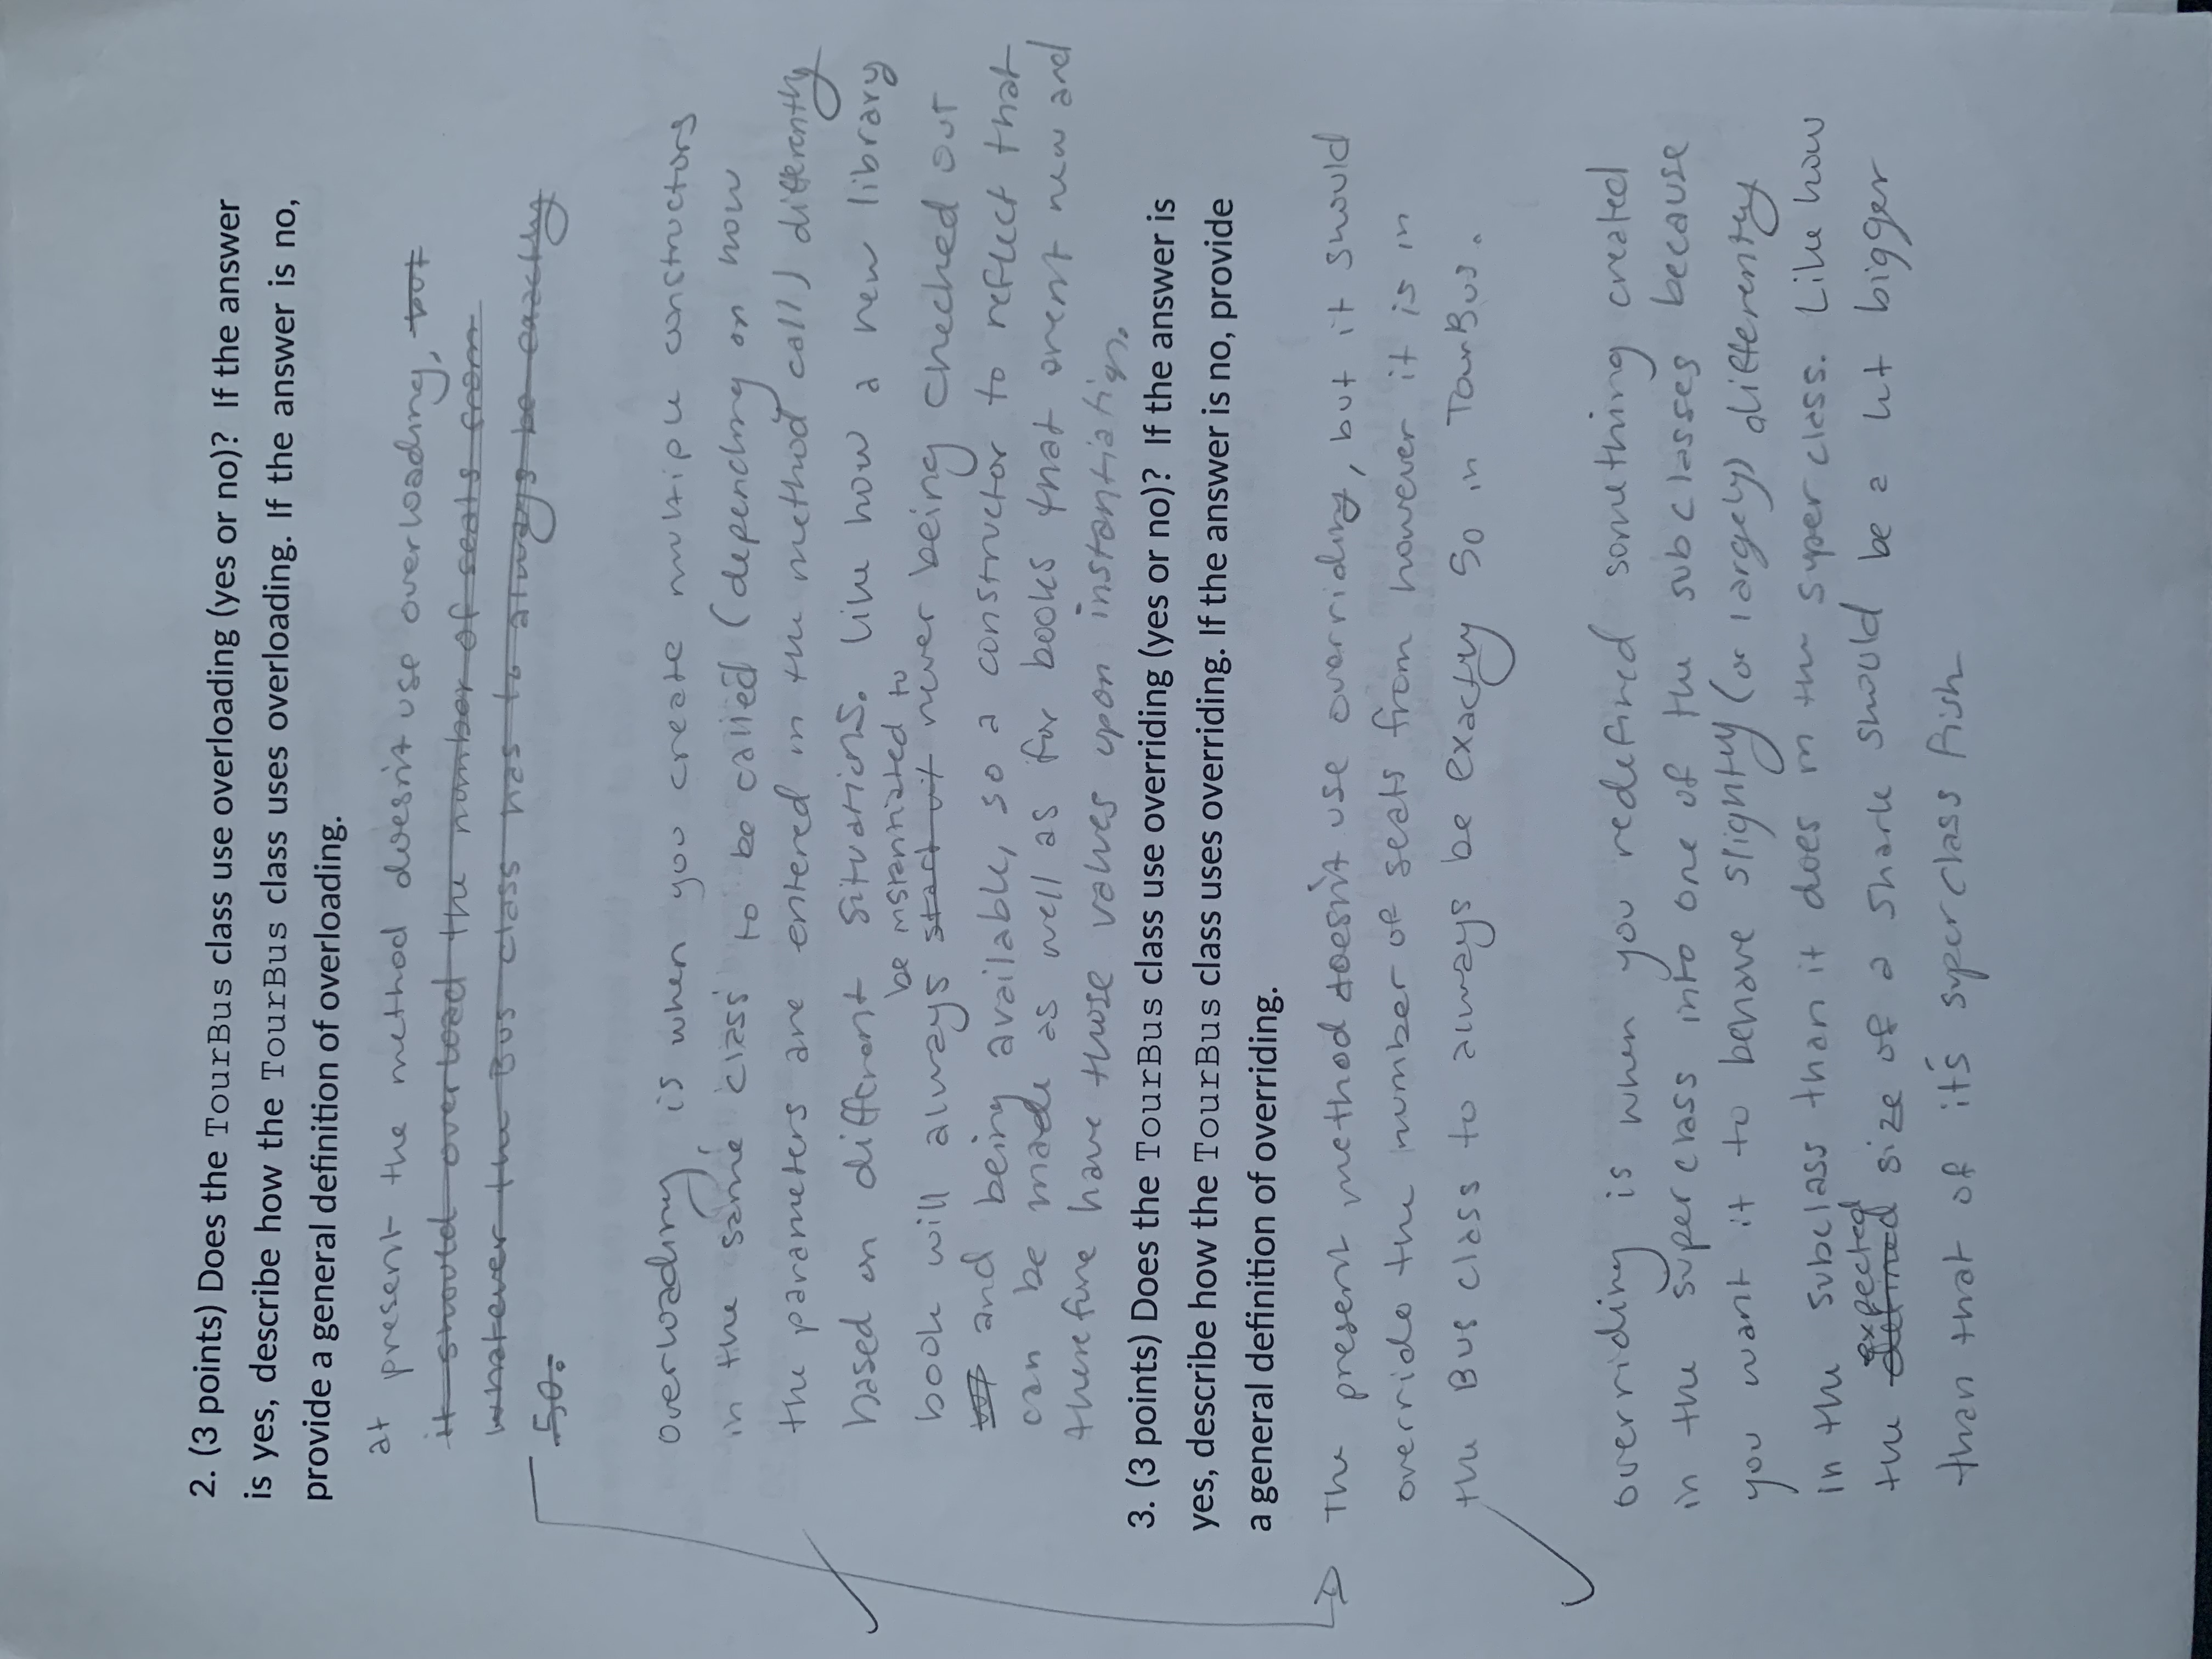 2. (3 points) Does the TourBus class use overloading (yes or no)? If the answer
is yes, describe how the TourBus class uses overloading. If the answer is no,
provide a general definition of overloading.
at present the method doesn't use overloading, but
it should overload the number of seats from
whatever the Bus class has to always be exactly
50.
overloading is when you create multiple constructors
in the same class to be called (depending on how
the parameters are entered in the method call) differently
based on different situations. Like how a new library
be instantiated to
book will always start w/ never being checked out
and being available, so a constructor to reflect that
can be made as well as for books that arent new and
therefore have those values upon instantiation.
3. (3 points) Does the TourBus class use overriding (yes or no)? If the answer is
yes, describe how the TourBus class uses overriding. If the answer is no, provide
a general definition of overriding.
The present method doesn't use overriding, but it should
override the number of seats from however it is in
the Bus class to always be exactly 50 in TourBus.
overriding is when you redefined something created
in the superclass into one of the subclasses because
you want it to behave slightly (or largely) differently
in the subclass than it does in the superclass. Like how
expected
the defined size of a shark should be a lot bigger
than that of it's superclass Fish